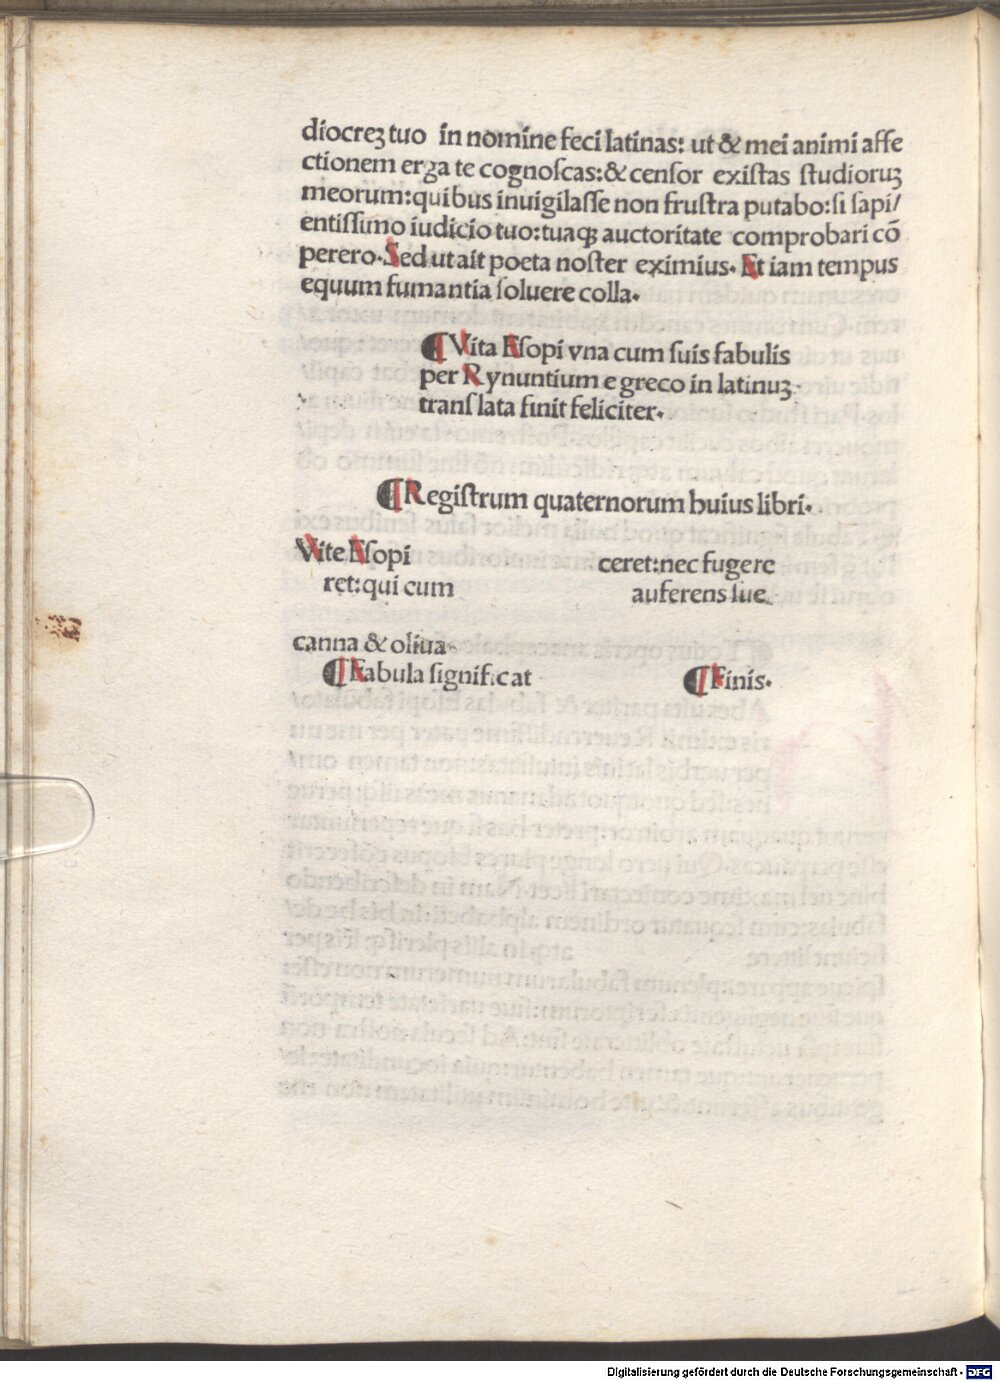 diocreꝫ tuo in nomine feci latinas: ut & mei animi affe
ctionem erga te cognoſcas:& cenſor exiſtas ſtudioruꝫ
meorum:quibus inuigilaſſe non fruſtra putabo:ſi ſapi/
entiſſimo iudicio tuo:tuaqꝫ auctoritate comprobari cō
perero. Sed ut ait poeta noſter eximius. Et iam tempus
equum fumantia ſoluere colla.
¶ Vita Eſopi vna cum ſuis fabulis
per Rynuntium e greco in latinuꝫ
tranſlata finit feliciter.
¶ Regiſtrum quaternorum huius libri.
Vite Eſopi
ret:qui cum
canna & oliua.
¶ Fabula ſignificat
ceret:nec fugere
auferens ſue.
¶ Finis.
Digitalisierung gefördert durch die Deutsche Forschungsgemeinschaft - DFG